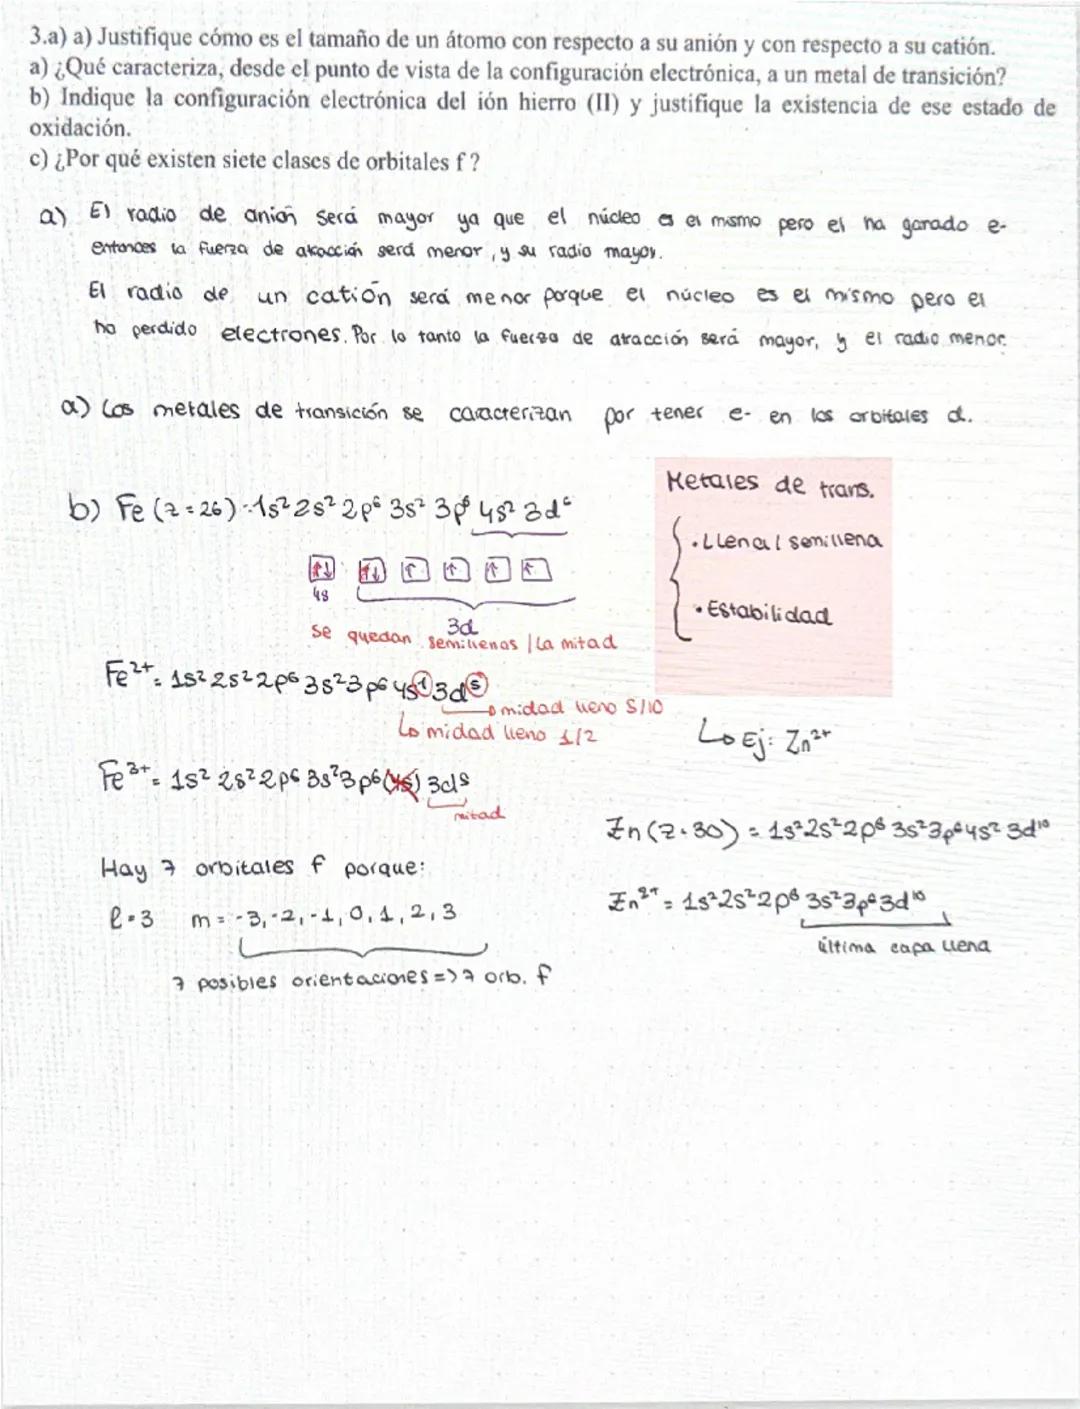 3.a) a) Justifique cómo es el tamaño de un átomo con respecto a su anión y con respecto a su catión.
a) ¿Qué caracteriza, desde el punto de vista de la configuración electrónica, a un metal de transición?
b) Indique la configuración electrónica del ión hierro (II) y justifique la existencia de ese estado de
oxidación.
c) ¿Por qué existen siete clases de orbitales f ?
a) El radio de anión será mayor ya que el núcleo es el mismo pero el ha ganado e-
entonces la fuerza de atracción será menor, y su radio mayor.
El radio de un catión será menor porque el núcleo es el mismo pero el
ha perdido electrones. Por lo tanto la fuerza de atracción será mayor, y el radio menor.
a) Los metales de transición se caracterizan por tener e- en los orbitales d.
Metales de trans.
b) Fe (z = 26) : 1s² 2s² 2p⁶ 3s² 3p⁶ 4s² 3d⁶
• Llena / semillena
4s
• Estabilidad
3d
se quedan semillenos / la mitad
Fe²⁺ = 1s² 2s² 2p⁶ 3s² 3p⁶ 4s¹ 3d⁵
midad lleno 5/10
↳ midad lleno 1/2
↳ Ej: Zn²⁺
Fe³⁺ = 1s² 2s² 2p⁶ 3s² 3p⁶ (4s) 3d⁵
mitad
Zn (z = 30) = 1s² 2s² 2p⁶ 3s² 3p⁶ 4s² 3d¹⁰
Hay 7 orbitales f porque:
Zn²⁺ = 1s² 2s² 2p⁶ 3s² 3p⁶ 3d¹⁰
l = 3 m = -3, -2, -1, 0, 1, 2, 3
última capa llena
7 posibles orientaciones => 7 orb. f